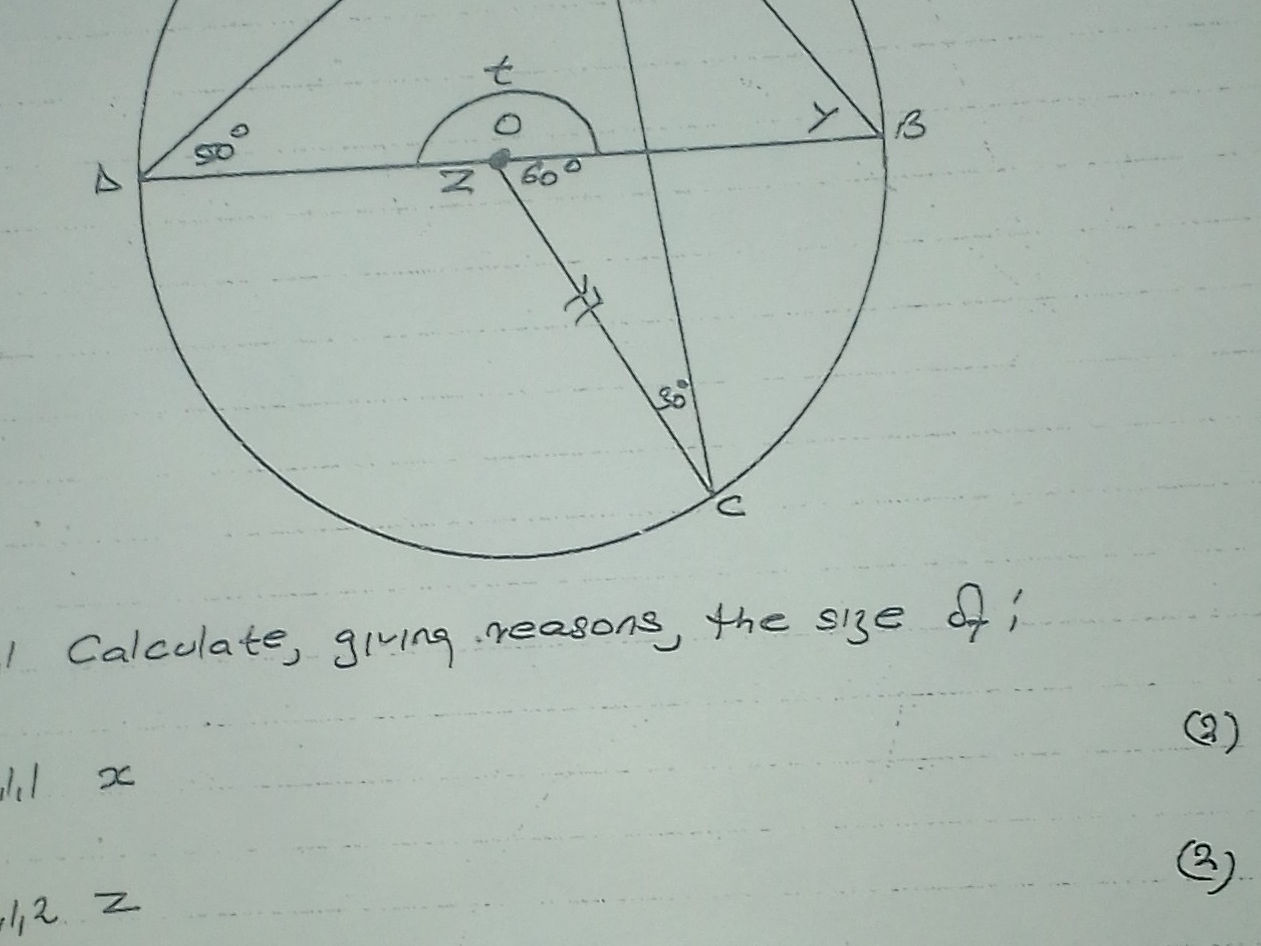 t
O
y
B
50°
D
Z
60°
30°
C
1 Calculate, giving reasons, the size of;
1.1.1 x (2)
1.1.2 z (2)